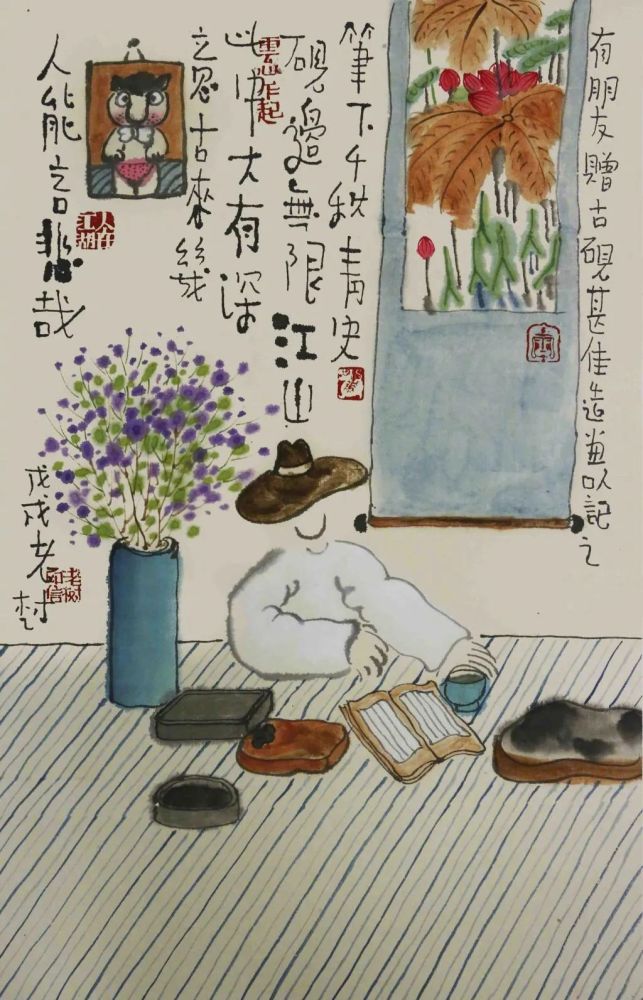 有朋友贈古硯甚佳造畫以記之
筆下千秋青史
硯邊無限江山
此中大有深
古來幾
人能言悲哉
人在江湖
戊戌老树